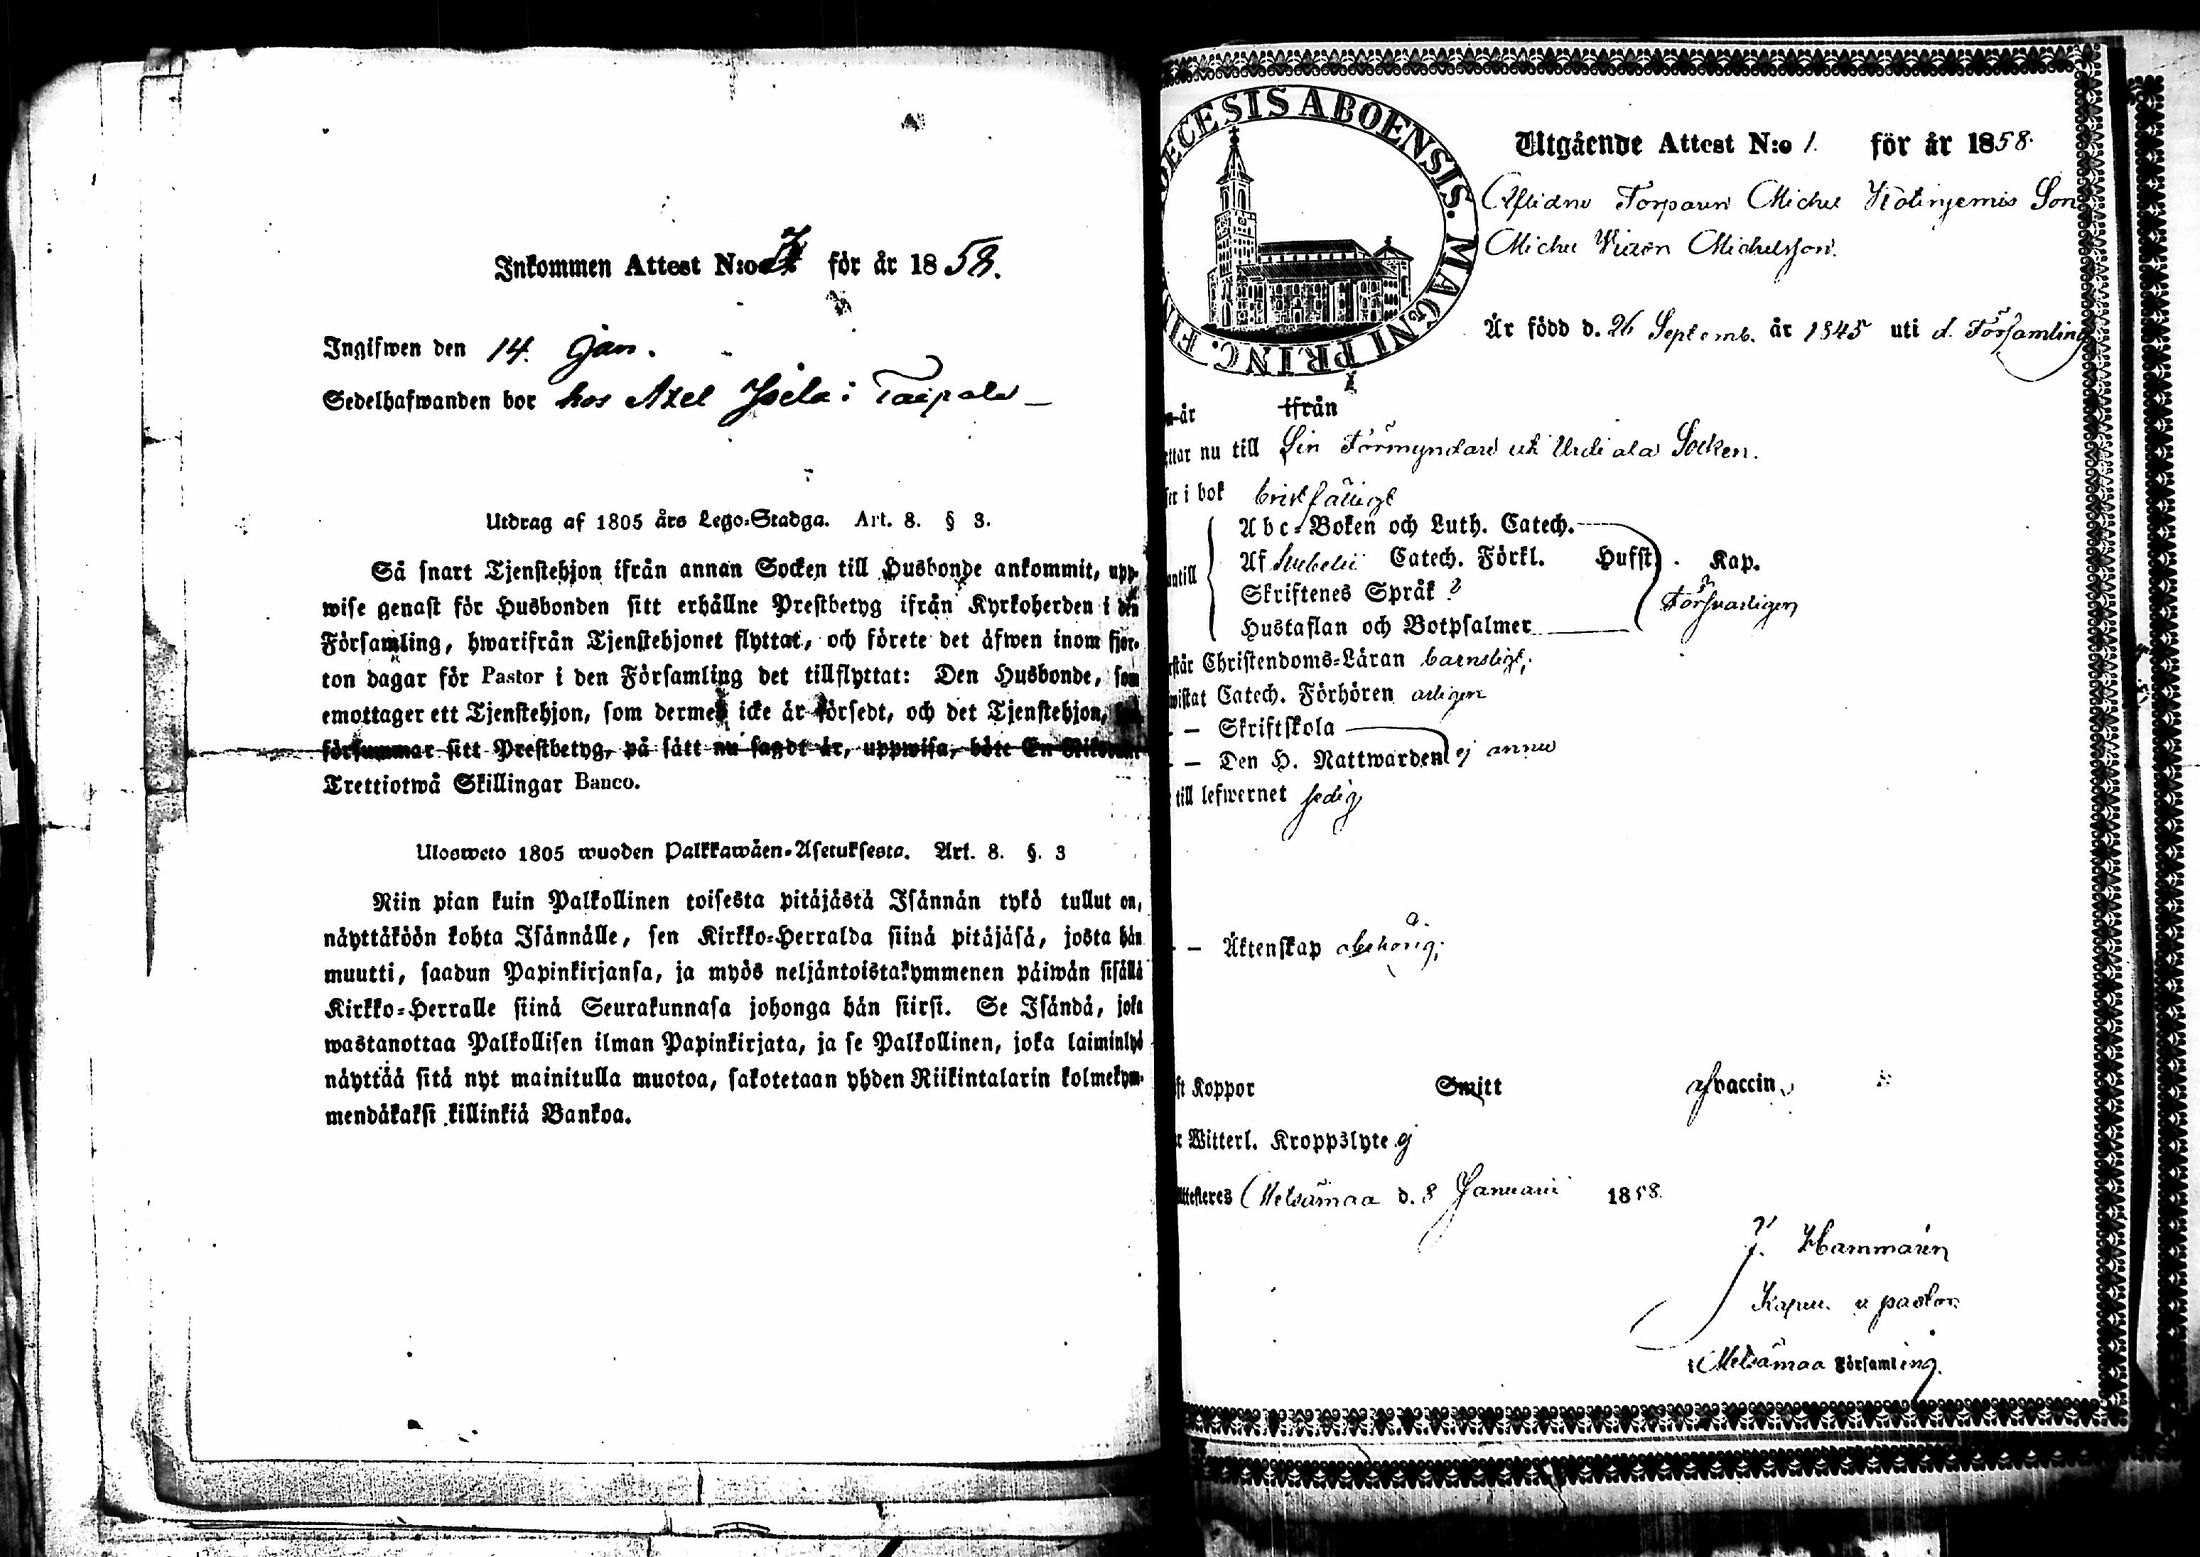 Inkommen Attest N:o 7 för år 1858.
Ingifwen den 14. Jan.
Sedelhafwanden bor hos Axel Isela i Taipale
Utdrag af 1805 års Lego-Stadga. Art. 8. § 3.
Så snart Tjenstehjon ifrån annan Socken till Husbonde ankommit, upp-
wise genast för Husbonden sitt erhållne Prestbetyg ifrån Kyrkoherden i den
Församling, hwarifrån Tjenstehjonet flyttat, och förete det äfwen inom fjor-
ton dagar för Pastor i den Församling det tillflyttat: Den Husbonde, som
emottager ett Tjenstehjon, som dermed icke är försedt, och det Tjenstehjon,
försummar sitt Prestbetyg, på sätt nu sagdt är, uppwisa, böte En Riksdaler
Trettiotwå Skillingar Banco.
Ulosweto 1805 wuoden Palkkawäen-Asetuksesta. Art. 8. §. 3
Niin pian kuin Palkollinen toisesta pitäjästä Isännän tykö tullut on,
näyttäköön kohta Isännälle, sen Kirkko-Herralda siinä pitäjäsä, josta hän
muutti, saadun Papinkirjansa, ja myös neljäntoistakymmenen päiwän sisällä
Kirkko-Herralle siinä Seurakunnasa johonga hän siirsi. Se Isändä, joka
wastanottaa Palkollisen ilman Papinkirjata, ja se Palkollinen, joka laiminlyö
näyttää sitä nyt mainitulla muotoa, sakotetaan yhden Riikintalarin kolmekym-
mendäkaksi killinkiä Bankoa.
DECESIS ABOENSIS. MAGNI PRINC. FIN
Utgående Attest N:o 1. för år 1858.
Aflidne Torparen Michel Son
Michel Michelsson.
Är född d. 26 Septemb. år 1845 uti d. Församling
år ifrån
ttar nu till Sin Förmyndare uti Urdiala Socken.
ser i bok bristfälligt
Abc-Boken och Luth. Catech.
antill Af Svebelii Catech. Förkl. Hufst. Kap.
Skriftenes Språk Försvarligen
Hustaflan och Botpsalmer
rstår Christendoms-Läran barnsligt;
wistat Catech. Förhören årligen
– – Skriftskola
– – Den H. Nattwarden ej ännu
till lefwernet sedig
– – Äktenskap obehörig;
ft Koppor Smitt vaccin
r Witterl. Kroppslyte ej
Attesteres Metsämaa d. 8 Januarii 1858.
J. Hammarén
Kapell. o pastor
i Metsämaa Församling.